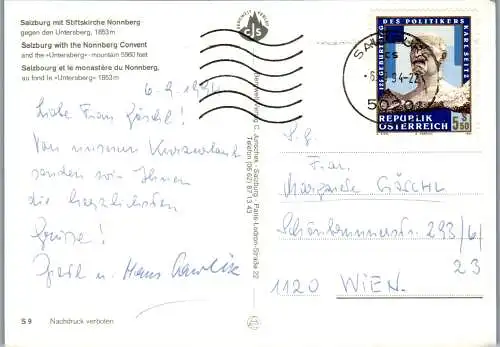 Salzburg mit Stiftskirche Nonnberg
gegen den Untersberg, 1853 m
Salzburg with the Nonnberg Convent
and the »Untersberg« - mountain 5960 feet
Salzbourg et le monastère du Nonnberg,
au fond le »Untersberg« 1853 m
6.9.1994
Liebe Frau Göschl!
Von unserem Kurzurlaub
senden wir Ihnen
die herzlichsten
Grüsse!
u. Hans
S 9 Nachdruck verboten
CJS
C. Jurischek - Salzburg - Paris-Lodron-Straße 22
Telefon (06 62) 87 13 43
125. GEBURTSTAG DES POLITIKERS KARL SEITZ
REPUBLIK
ÖSTERREICH
S
5.50
5020
S.g.
Frau
Margarete GÖSCHL
Schönbrunnerstr. 293/6/
23
1120 WIEN.